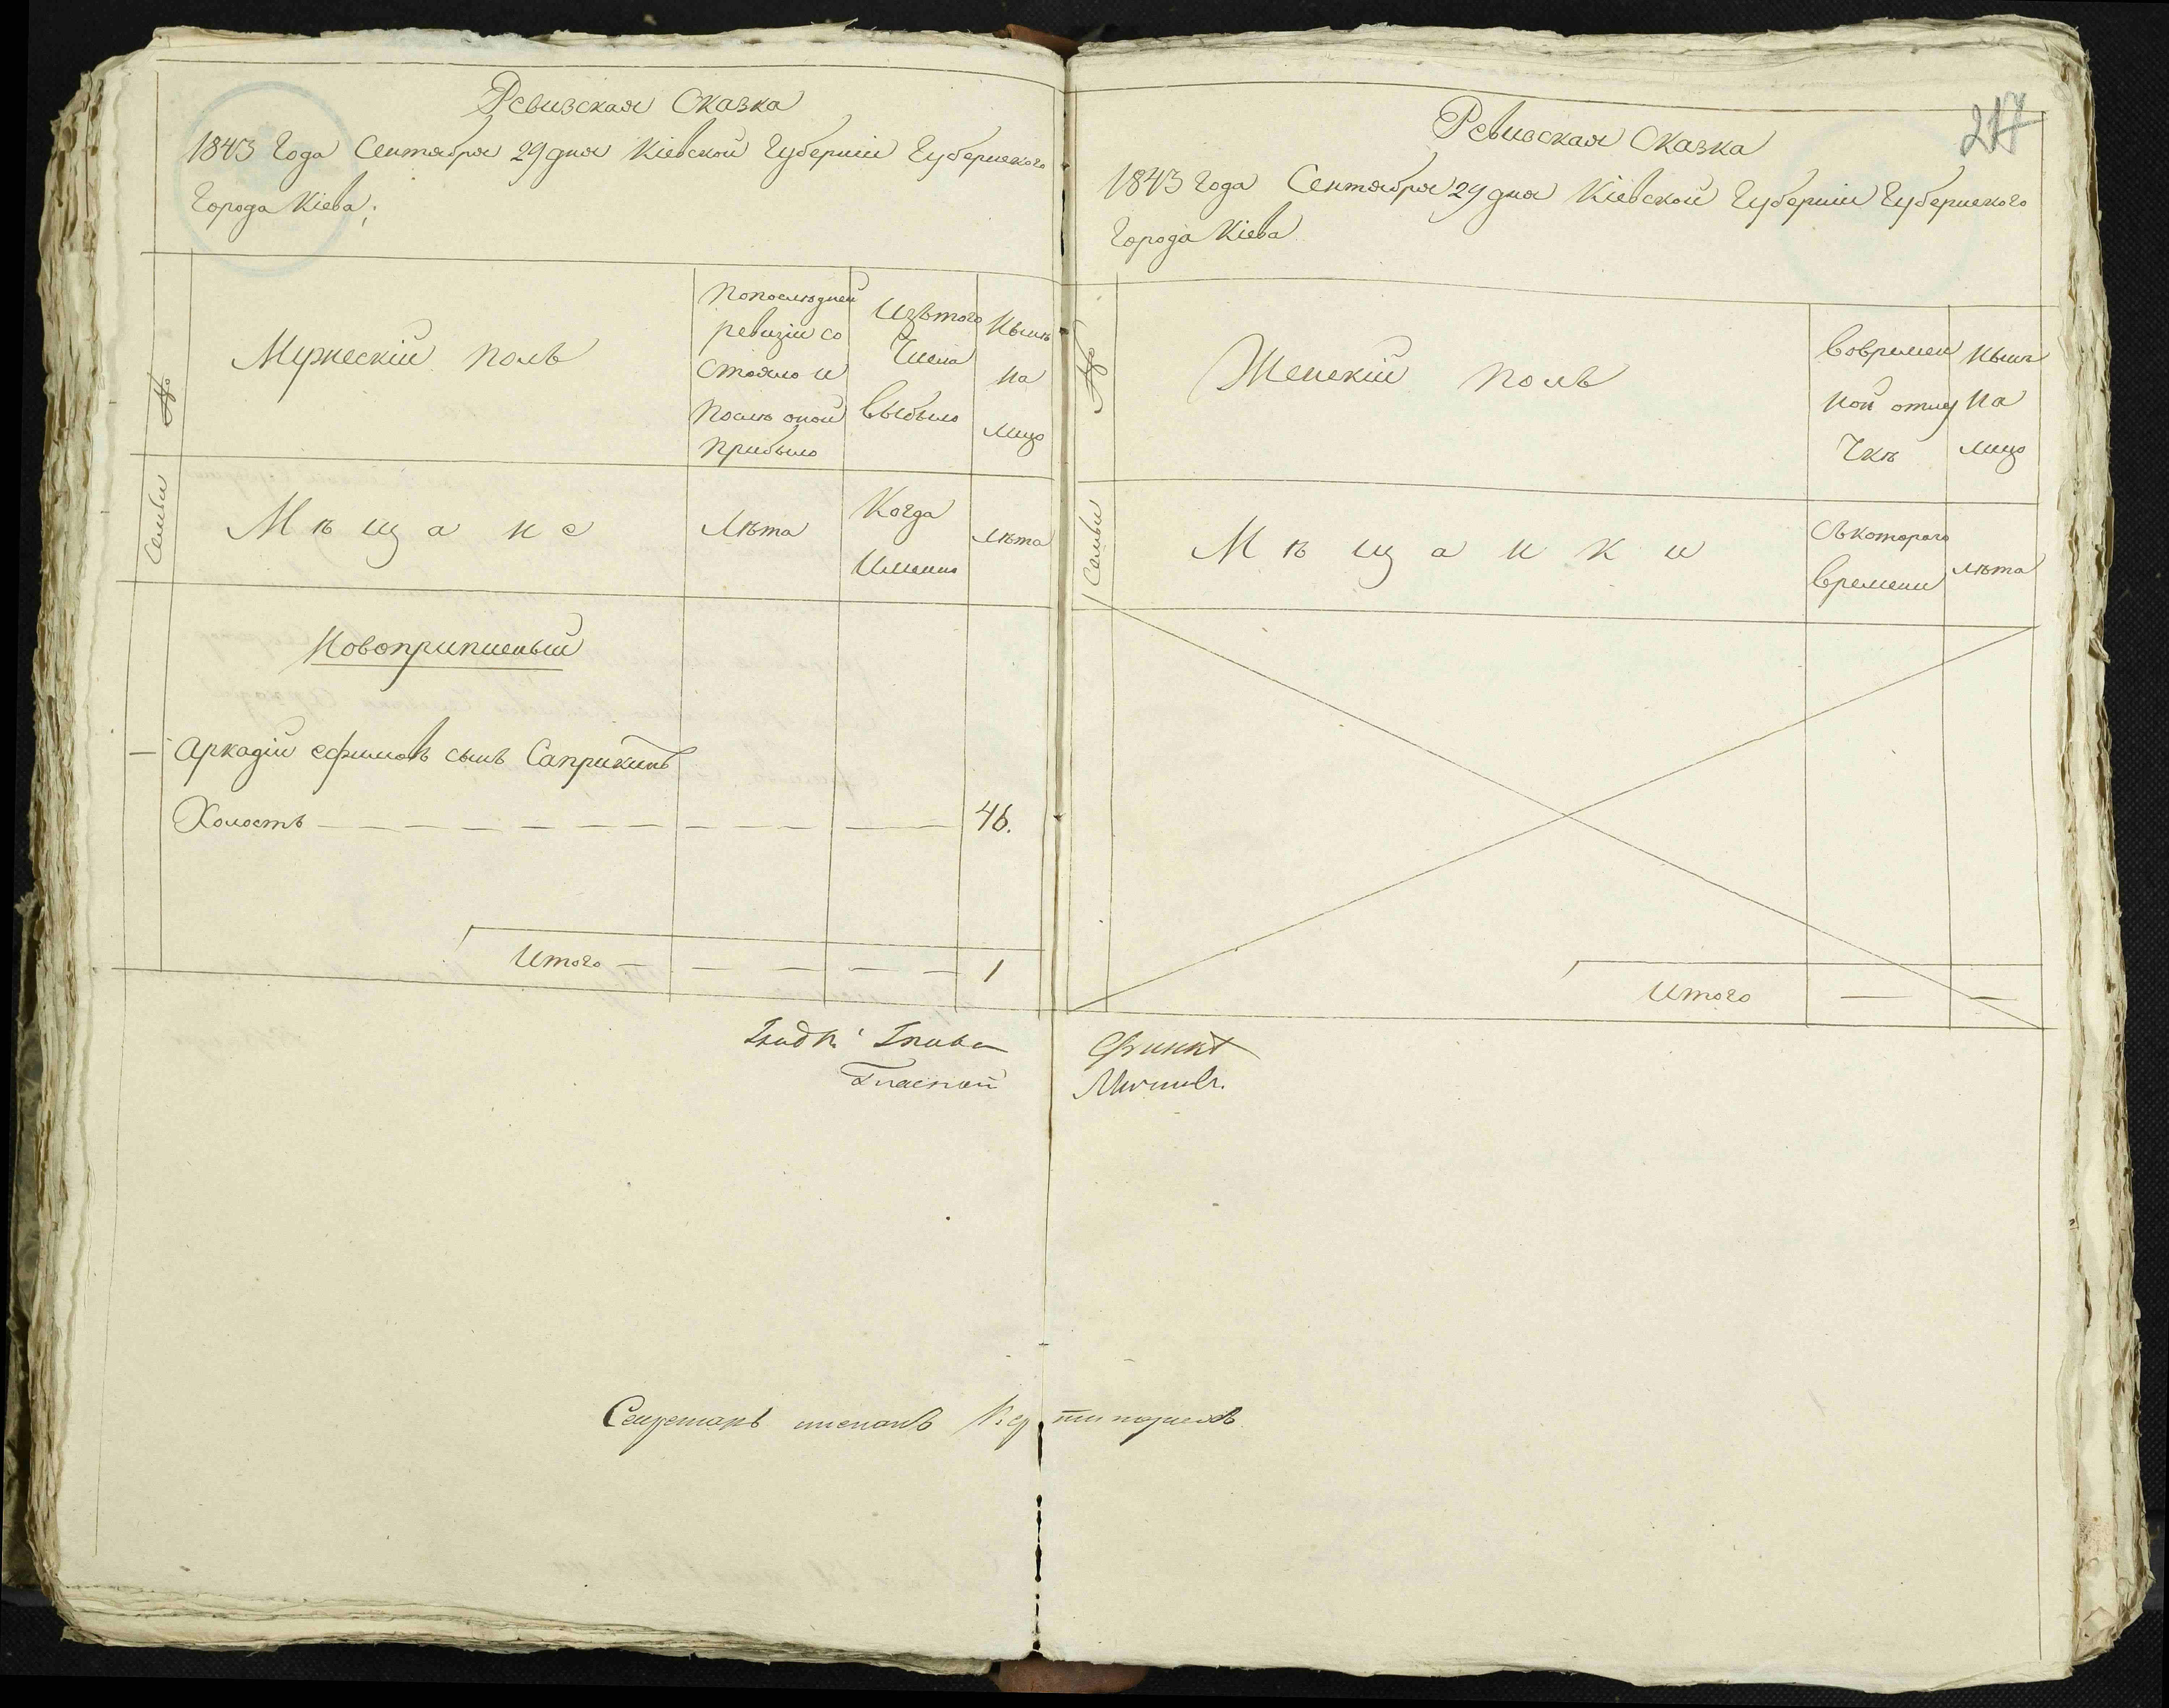 Ревизская Сказка
1843 Года Сентября 29 дня Кіевской Губерніи Губернского
Города Кіева;
№
Семьи
Мужескій полъ
По последней
ревизіи со
стояло и
после оной
прибыло
Изътого
Числа
выбыло
Ныне
на
лицо
Мѣщане
Лѣта
Когда
Именно
лѣта
Новоприписный
Аркадій ефимовъ сынъ Саприкинъ
Холостъ — — — — — — — — — — 46.
Итого — — — — — 1
Гласной
Секретарь
217
Ревизская Сказка
1843 Года Сентября 29 дня Кіевской Губерніи Губернского
Города Кіева
№
Семьи
Женскій полъ
Вовремен
ной отлу
Чкѣ
Нынѣ
На
лицо
Мѣщанки
Съкоторого
Времени
лѣта
Итого — —